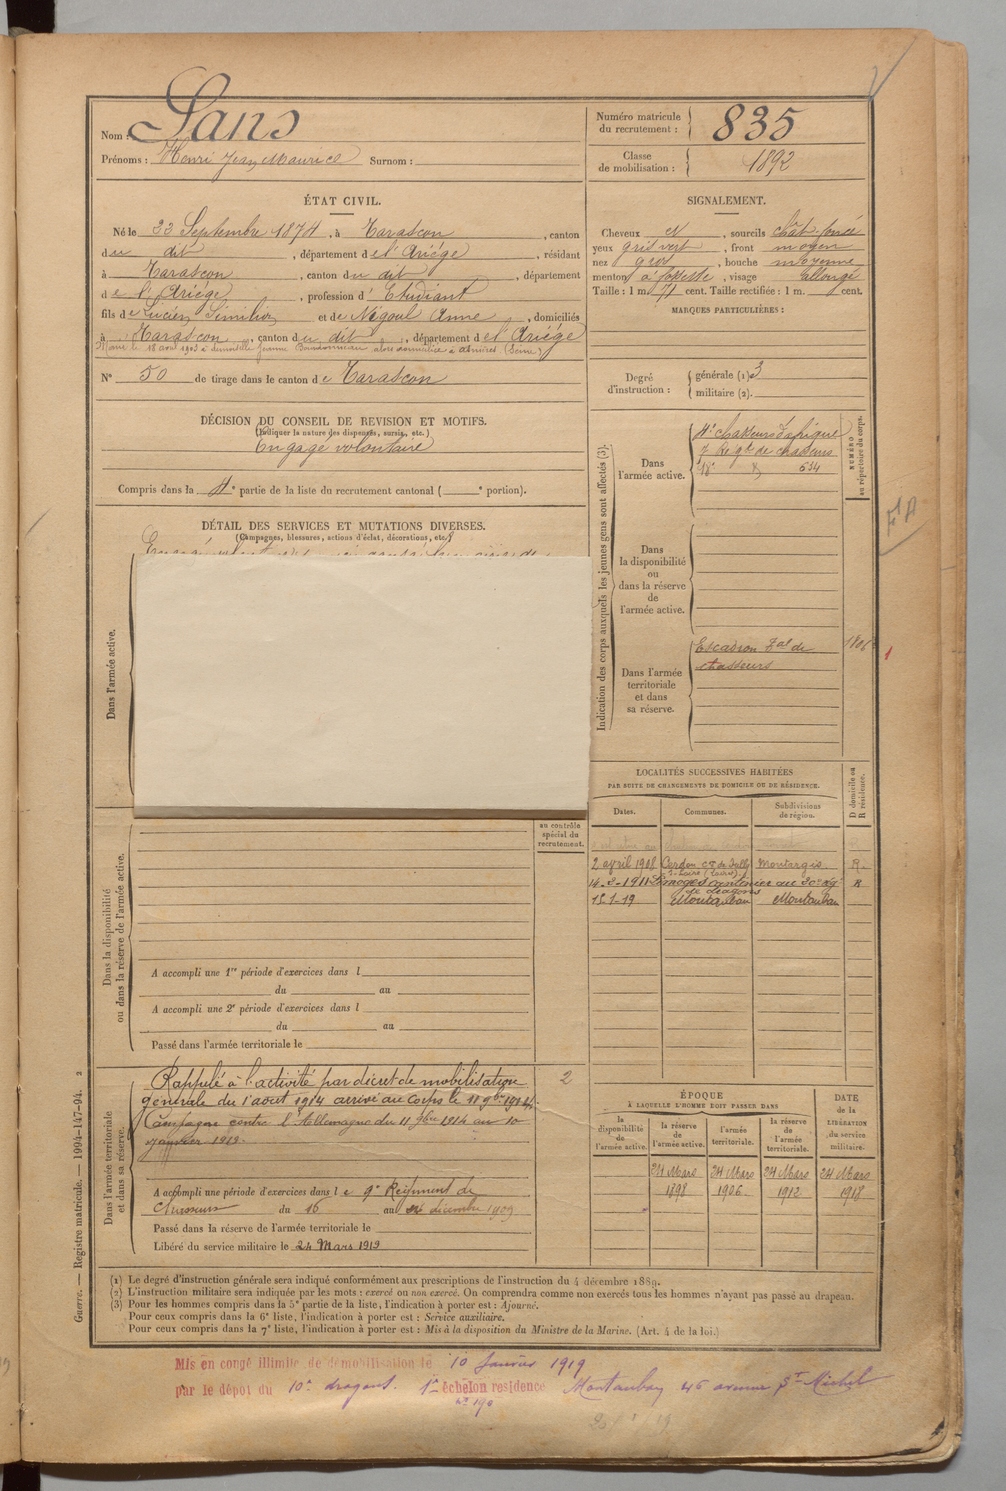 Nom : Sans
Prénoms : Henri Jean Maurice Surnom :
Numéro matricule du recrutement : 835
Classe de mobilisation : 1892
ÉTAT CIVIL.
Né le 23 Septembre 1874, à Tarascon, canton
du dit, département de l'Ariége, résidant
à Tarascon, canton du dit, département
de l'Ariége, profession d' Etudiant
fils de Lucien Similien et de Négoul Anne, domiciliés
à Tarascon, canton du dit, département de l'Ariége
Marié le 18 avril 1903 à demoiselle Jeanne domiciliée à Asnières (Seine)
N° 50 de tirage dans le canton de Tarascon
SIGNALEMENT.
Cheveux et, sourcils chât. foncé
yeux gris vert, front moyen
nez gros, bouche moyenne
menton à fossette, visage allongé
Taille : 1 m. 71 cent. Taille rectifiée : 1 m. cent.
MARQUES PARTICULIÈRES :
Degré d'instruction : générale (1) 3
militaire (2).
DÉCISION DU CONSEIL DE REVISION ET MOTIFS.
(Indiquer la nature des dispenses, sursis, etc.)
Engagé volontaire
Compris dans la 4e partie de la liste du recrutement cantonal ( e portion).
DÉTAIL DES SERVICES ET MUTATIONS DIVERSES.
(Campagnes, blessures, actions d'éclat, décorations, etc.)
Dans l'armée active.
Indication des corps auxquels les jeunes gens sont affectés (3).
NUMÉRO au répertoire du corps.
Dans l'armée active.
4e chasseurs d'afrique
7 Regt de chasseurs
18e 534
Dans la disponibilité ou dans la réserve de l'armée active.
Dans l'armée territoriale et dans sa réserve.
Escadron tal de chasseurs
1906
1
LOCALITÉS SUCCESSIVES HABITÉES
PAR SUITE DE CHANGEMENTS DE DOMICILE OU DE RÉSIDENCE.
Dates. Communes. Subdivisions de région. D domicile ou R résidence.
2 avril 1908 Cerdon con de Sully s-Loire (Loiret) Montargis R.
14-3-1911 Limoges cantinier au 20e Rgt de dragons R
15-1-19 Montauban Montauban
au contrôle spécial du recrutement.
Dans la disponibilité ou dans la réserve de l'armée active.
A accompli une 1re période d'exercices dans l
du au
A accompli une 2e période d'exercices dans l
du au
Passé dans l'armée territoriale le
Dans l'armée territoriale et dans sa réserve.
Rappelé à l'activité par décret de mobilisation
générale du 1 août 1914 arrivé au Corps le 11 9bre 1914.
2
Campagne contre l'Allemagne du 11 9bre 1914 au 10
janvier 1919.
A accompli une période d'exercices dans le 9e Régiment de
Chasseurs du 16 au décembre 1909
Passé dans la réserve de l'armée territoriale le
Libéré du service militaire le 24 Mars 1919
ÉPOQUE
À LAQUELLE L'HOMME DOIT PASSER DANS
la disponibilité de l'armée active. la réserve de l'armée active. l'armée territoriale. la réserve de l'armée territoriale.
DATE de la LIBÉRATION du service militaire.
24 Mars 1898 24 Mars 1906 24 Mars 1912 24 Mars 1918
Guerre. — Registre matricule. — 1994-147-94. 2
(1) Le degré d'instruction générale sera indiqué conformément aux prescriptions de l'instruction du 4 décembre 1889.
(2) L'instruction militaire sera indiquée par les mots : exercé ou non exercé. On comprendra comme non exercés tous les hommes n'ayant pas passé au drapeau.
(3) Pour les hommes compris dans la 5e partie de la liste, l'indication à porter est : Ajourné.
Pour ceux compris dans la 6e liste, l'indication à porter est : Service auxiliaire.
Pour ceux compris dans la 7e liste, l'indication à porter est : Mis à la disposition du Ministre de la Marine. (Art. 4 de la loi.)
Mis en congé illimité de démobilisation le 10 Janvier 1919
par le dépôt du 10e dragons. 1er échelon residence Montauban 46 avenue St Michel
n° 190